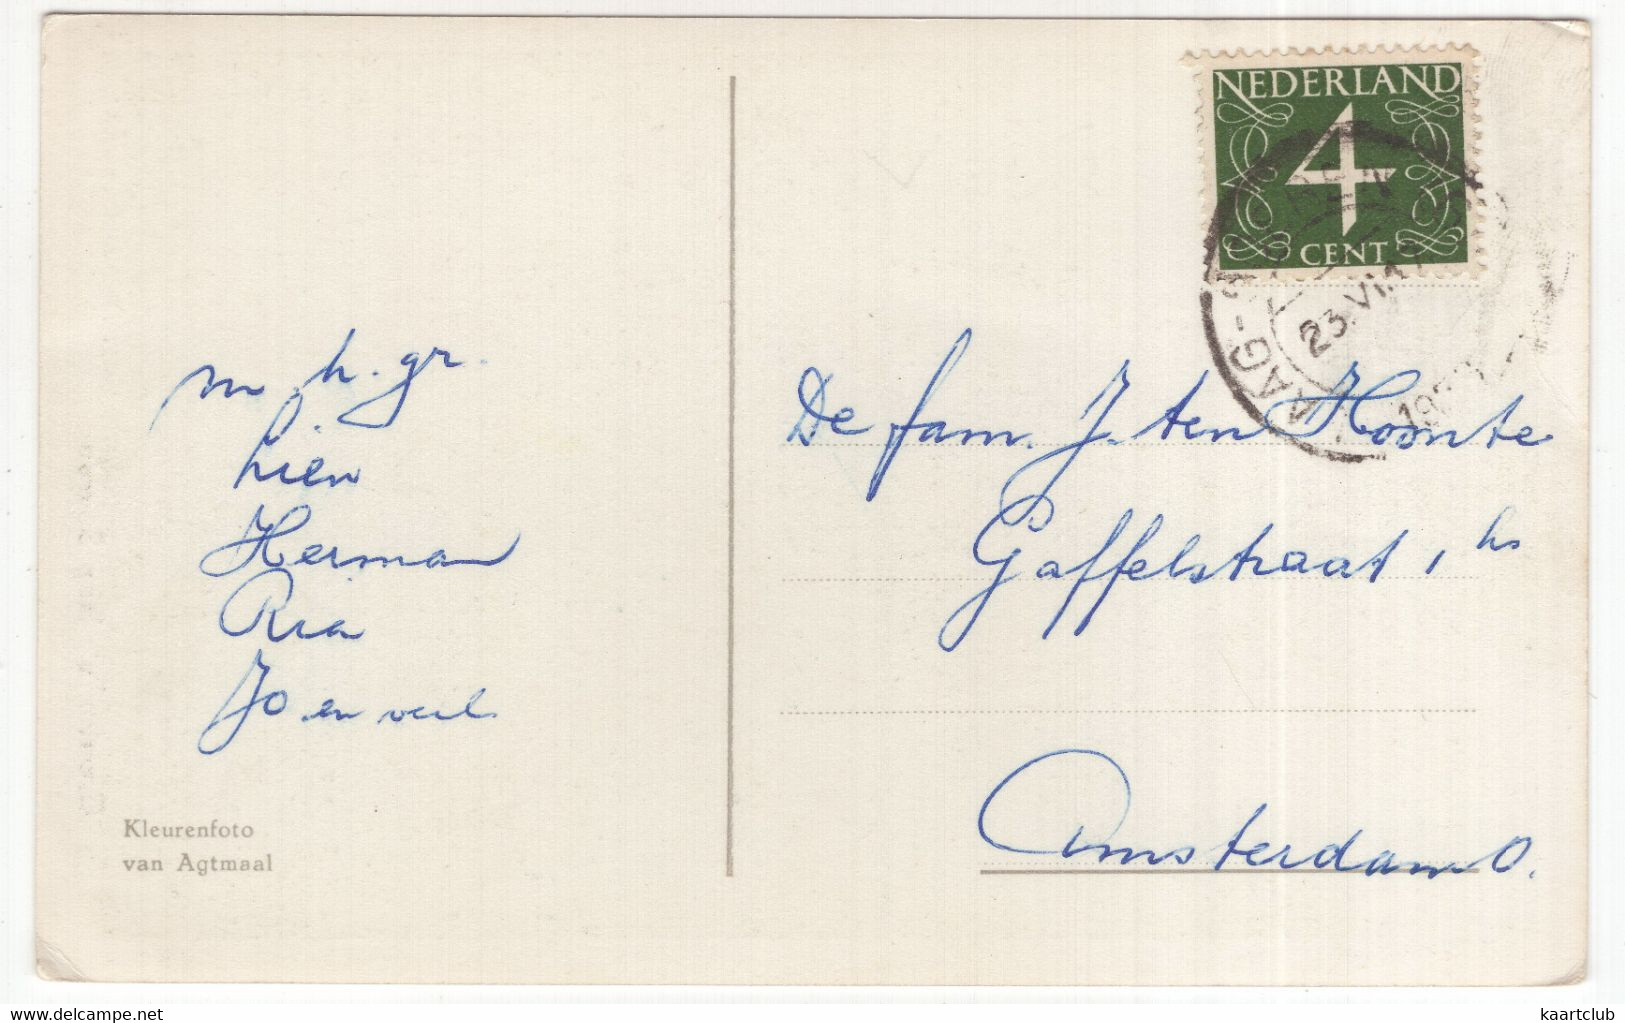 m. h. gr.
Lien
Herman
Ria
Jo en
Kleurenfoto
van Agtmaal
NEDERLAND
4
CENT
23.VI
De fam. J. ten
Gaffelstraat 1 hs
Amsterdam O.
kaartclub
www.delcampe.net